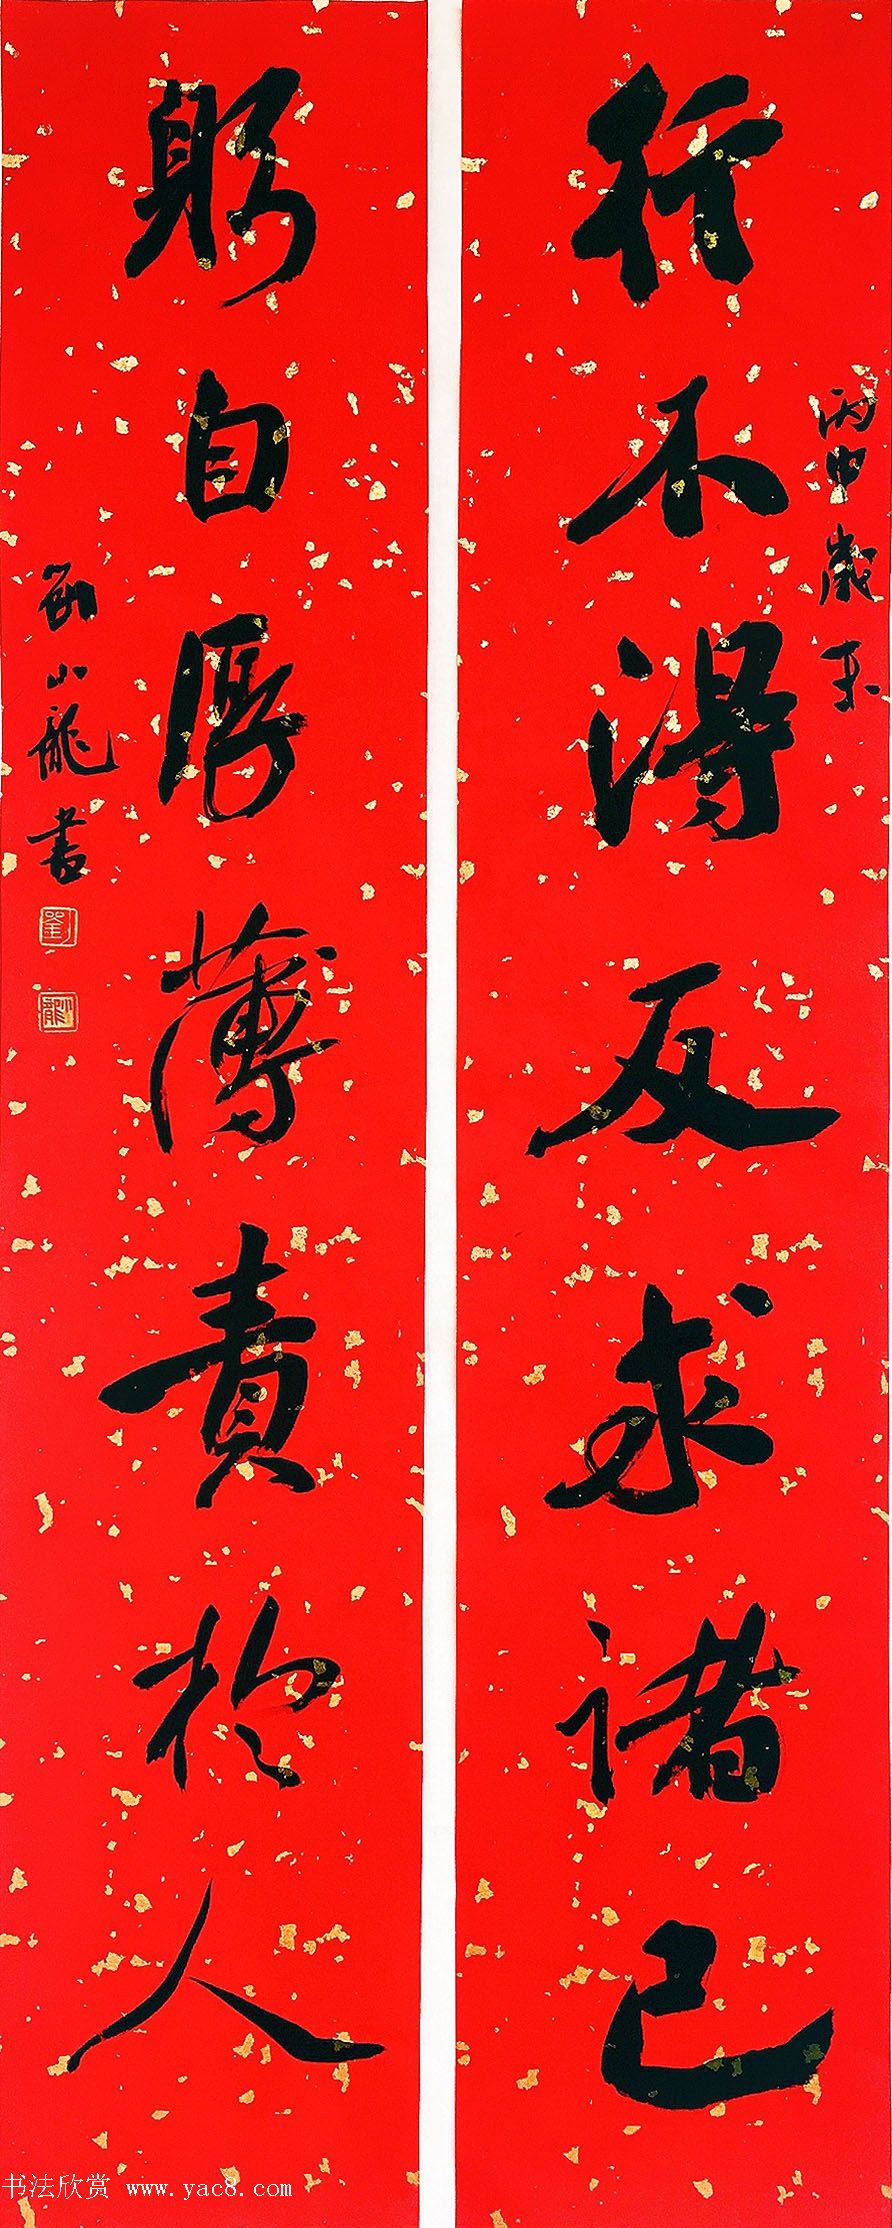 行不得反求諸己
丙申歲末
躬自厚薄責於人
劉小龍書
劉
小龍
书法欣赏 www.yac8.com